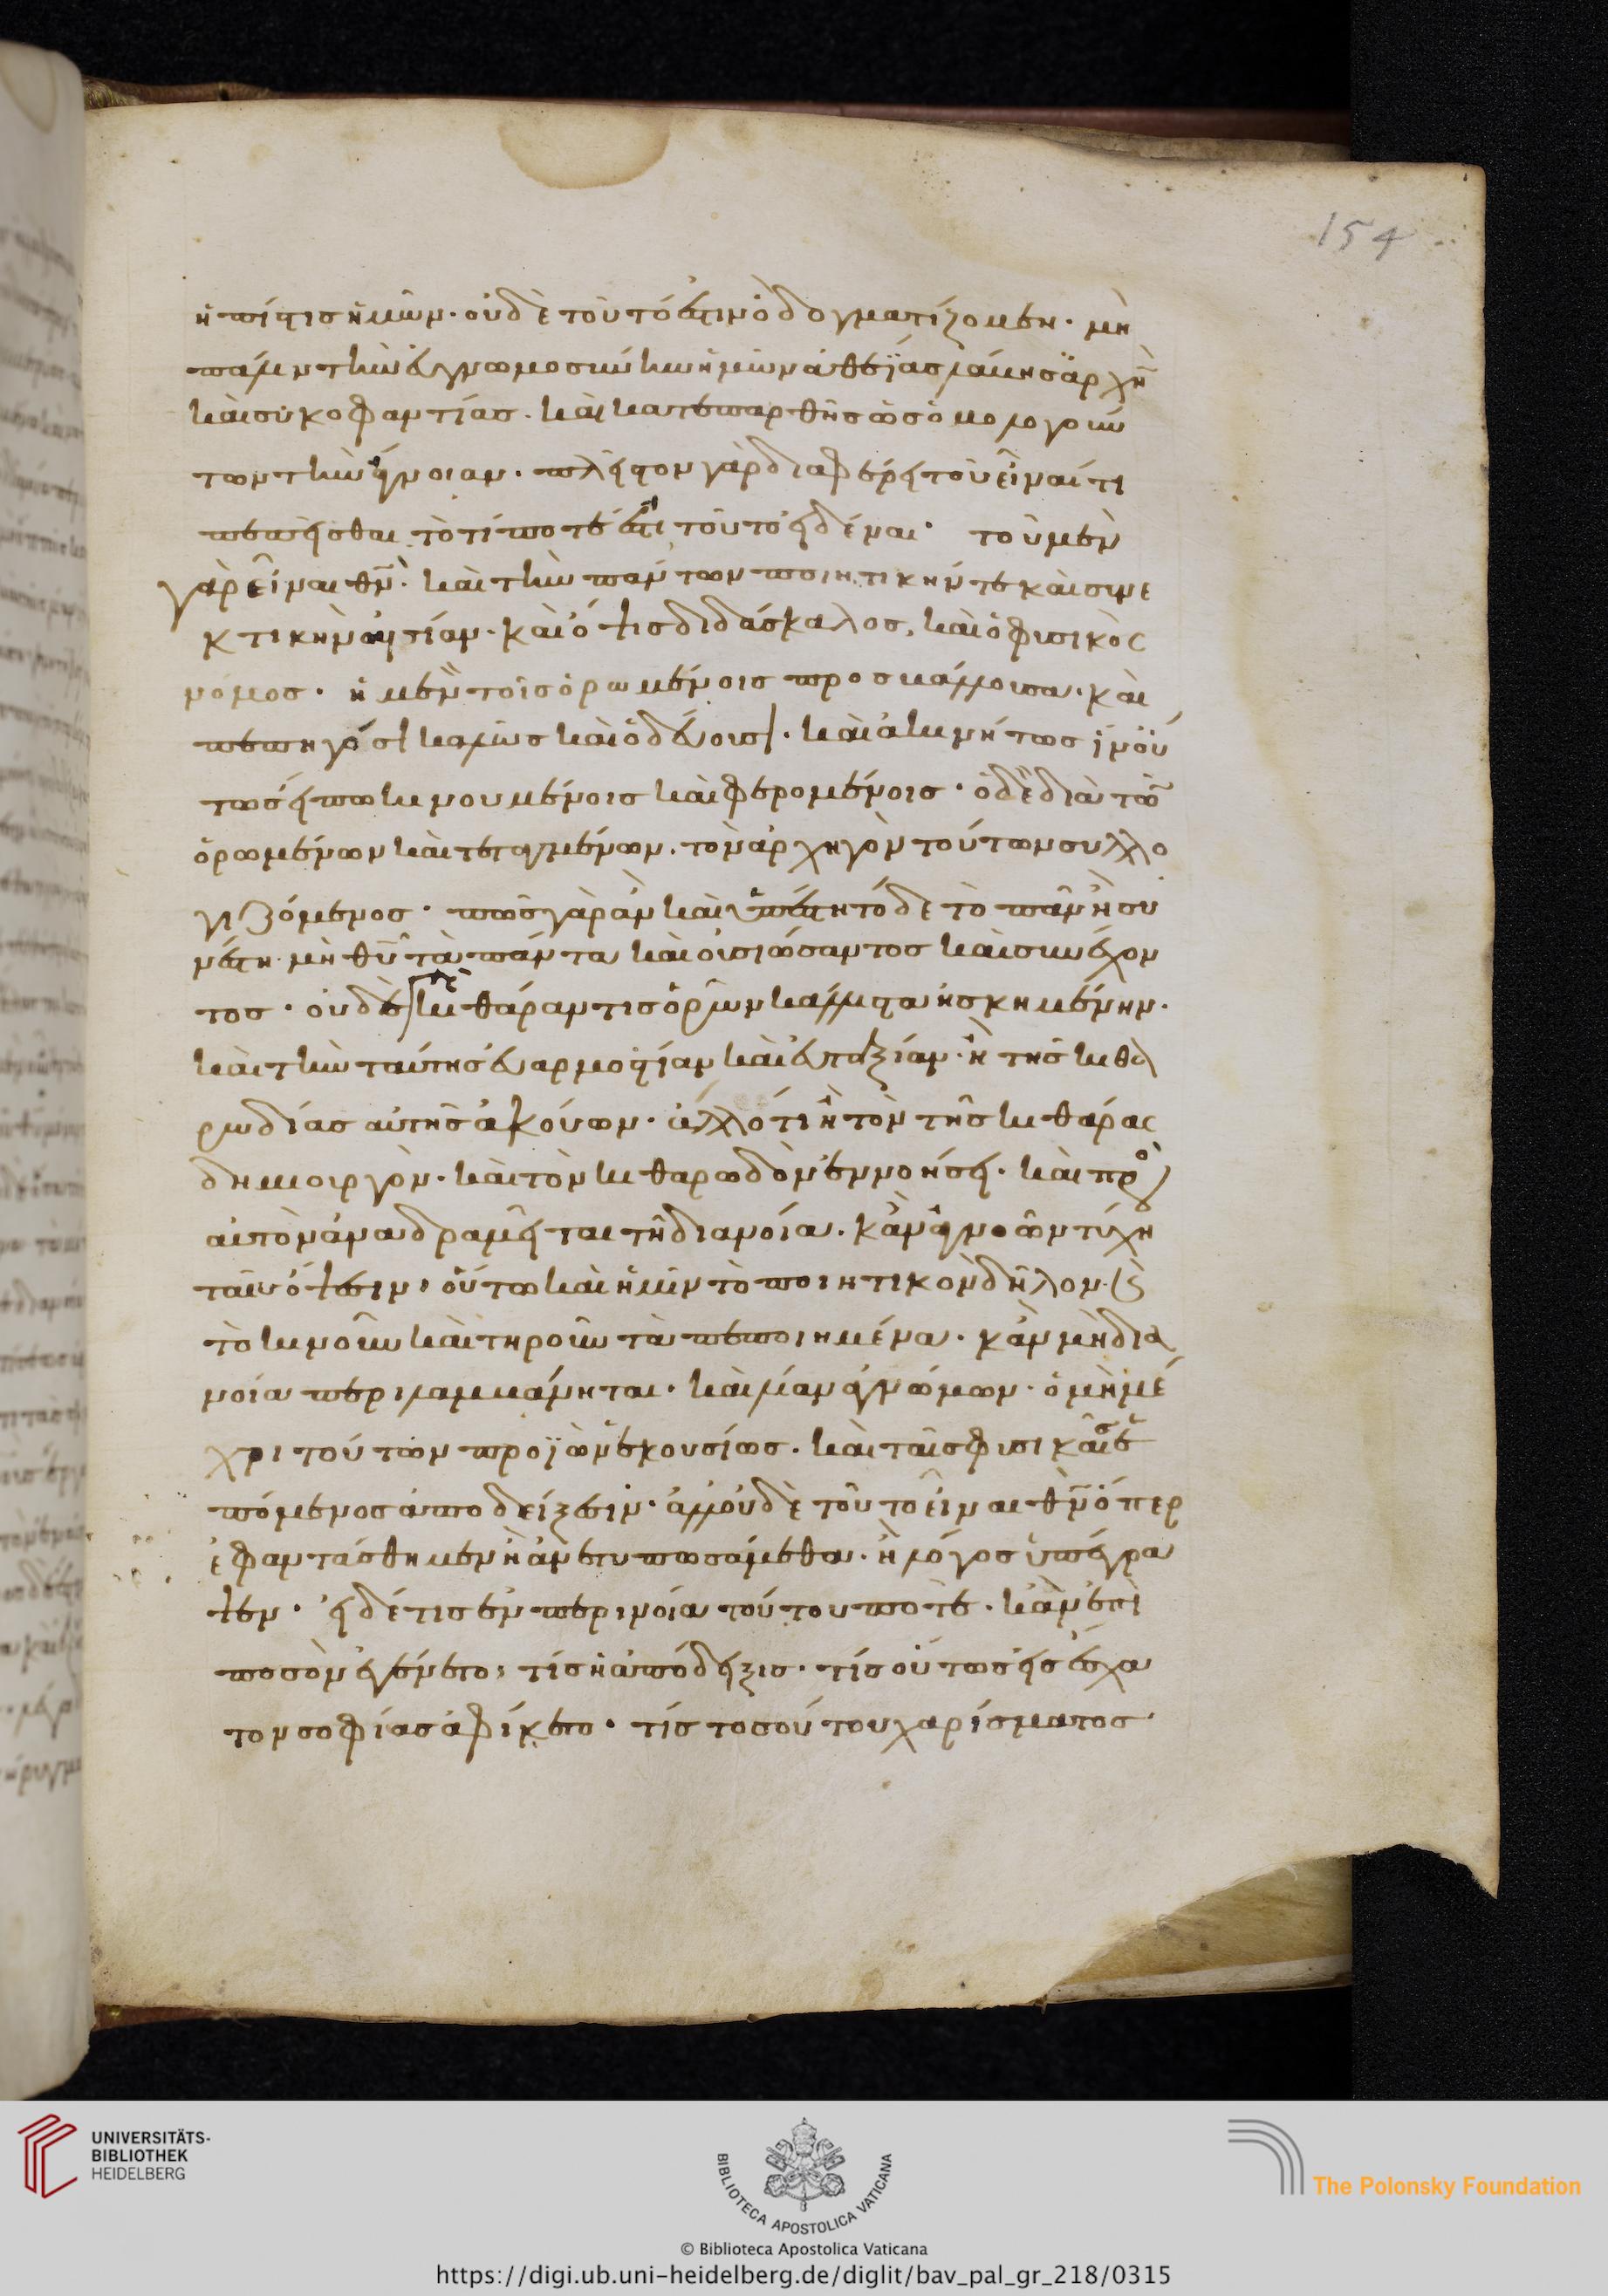 154
ἡ πίστις ἡμῶν. οὐδὲ τοῦτό ἐστιν ὃ δογματίζομεν. μὴ
πάλιν τὴν εὐγνωμοσύνην ἡμῶν ἀθεΐας λάβῃς ἀρχὴν
καὶ συκοφαντίας. καὶ κατεπαρθῇς ὡς ὁμολογούν
των τὴν ἄγνοιαν. πλεῖστον γὰρ διαφέρει τοῦ εἶναί τι
πεπεῖσθαι τὸ τί ποτέ ἐστι τοῦτο εἰδέναι. τοῦ μὲν
γὰρ εἶναι θν. καὶ τὴν πάντων ποιητικήν τε καὶ συνε
κτικὴν αἰτίαν. καὶ ὄψις διδάσκαλος, καὶ ὁ φυσικὸς
νόμος. ἡ μὲν τοῖς ὁρωμένοις προσβάλλουσα. καὶ
πεπηγόσι καλῶς καὶ ὁδεύουσι. καὶ ἀκινήτως ἵν' οὕ
τως εἴπω κινουμένοις καὶ φερομένοις. ὁ δὲ διὰ τῶν
ὁρωμένων καὶ τεταγμένων. τὸν ἀρχηγὸν τούτων συλλο
γιζόμενος. πῶς γὰρ ἂν καὶ ὑπέστη τόδε τὸ πᾶν ἢ συ
νέστη. μὴ θυ τὰ πάντα καὶ οὐσιώσαντος καὶ συνέχον
τος. οὐδὲ γὰρ κιθάραν τις ὁρῶν κάλλιστα ἠσκημένην.
καὶ τὴν ταύτης εὐαρμοστίαν καὶ εὐταξίαν. ἢ τῆς κιθα
ρῳδίας αὐτῆς ἀκούων. ἄλλό τι ἢ τὸν τῆς κιθάρας
δημιουργὸν. καὶ τὸν κιθαρῳδὸν ἐννοήσει. καὶ πρὸς
αὐτὸν ἀναδραμεῖται τῇ διανοίᾳ. κἂν ἀγνοῶν τύχῃ
ταῖς ὄψεσιν. οὕτω καὶ ἡμῖν τὸ ποιητικὸν δῆλον. καὶ
τὸ κινοῦν καὶ τηροῦν τὰ πεποιημένα. κἂν μὴ δια
νοίᾳ περιλαμβάνηται. καὶ λίαν ἀγνώμων. ὁ μὴ μέ
χρι τούτων προϊὼν ἑκουσίως. καὶ ταῖς φυσικαῖς ἑ
πόμενος ἀποδείξεσιν. ἀλλ' οὐδὲ τοῦτο εἶναι θν ὅπερ
ἐφαντάσθημεν ἢ ἀνετυπωσάμεθα. ἢ λόγος ὑπέγρα
ψεν. εἰ δέ τις ἐν περινοίᾳ τούτου ποτὲ. κἂν ἐπὶ
ποσὸν ἐγένετο; τίς ἡ ἀπόδειξις. τίς οὕτως εἰς ἔσχα
τον σοφίας ἀφίκετο. τίς τοσούτου χαρίσματος
UNIVERSITÄTS-
BIBLIOTHEK
HEIDELBERG
BIBLIOTECA APOSTOLICA VATICANA
The Polonsky Foundation
© Biblioteca Apostolica Vaticana
https://digi.ub.uni-heidelberg.de/diglit/bav_pal_gr_218/0315